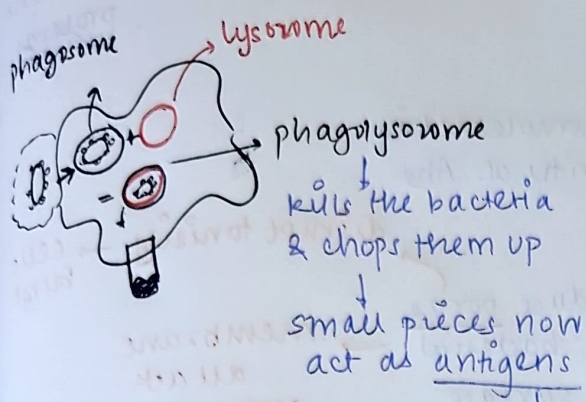 phagosome
lysosome
+
=
phagolysosome
↓
kills the bacteria
& chops them up
↓
small pieces now
act as antigens